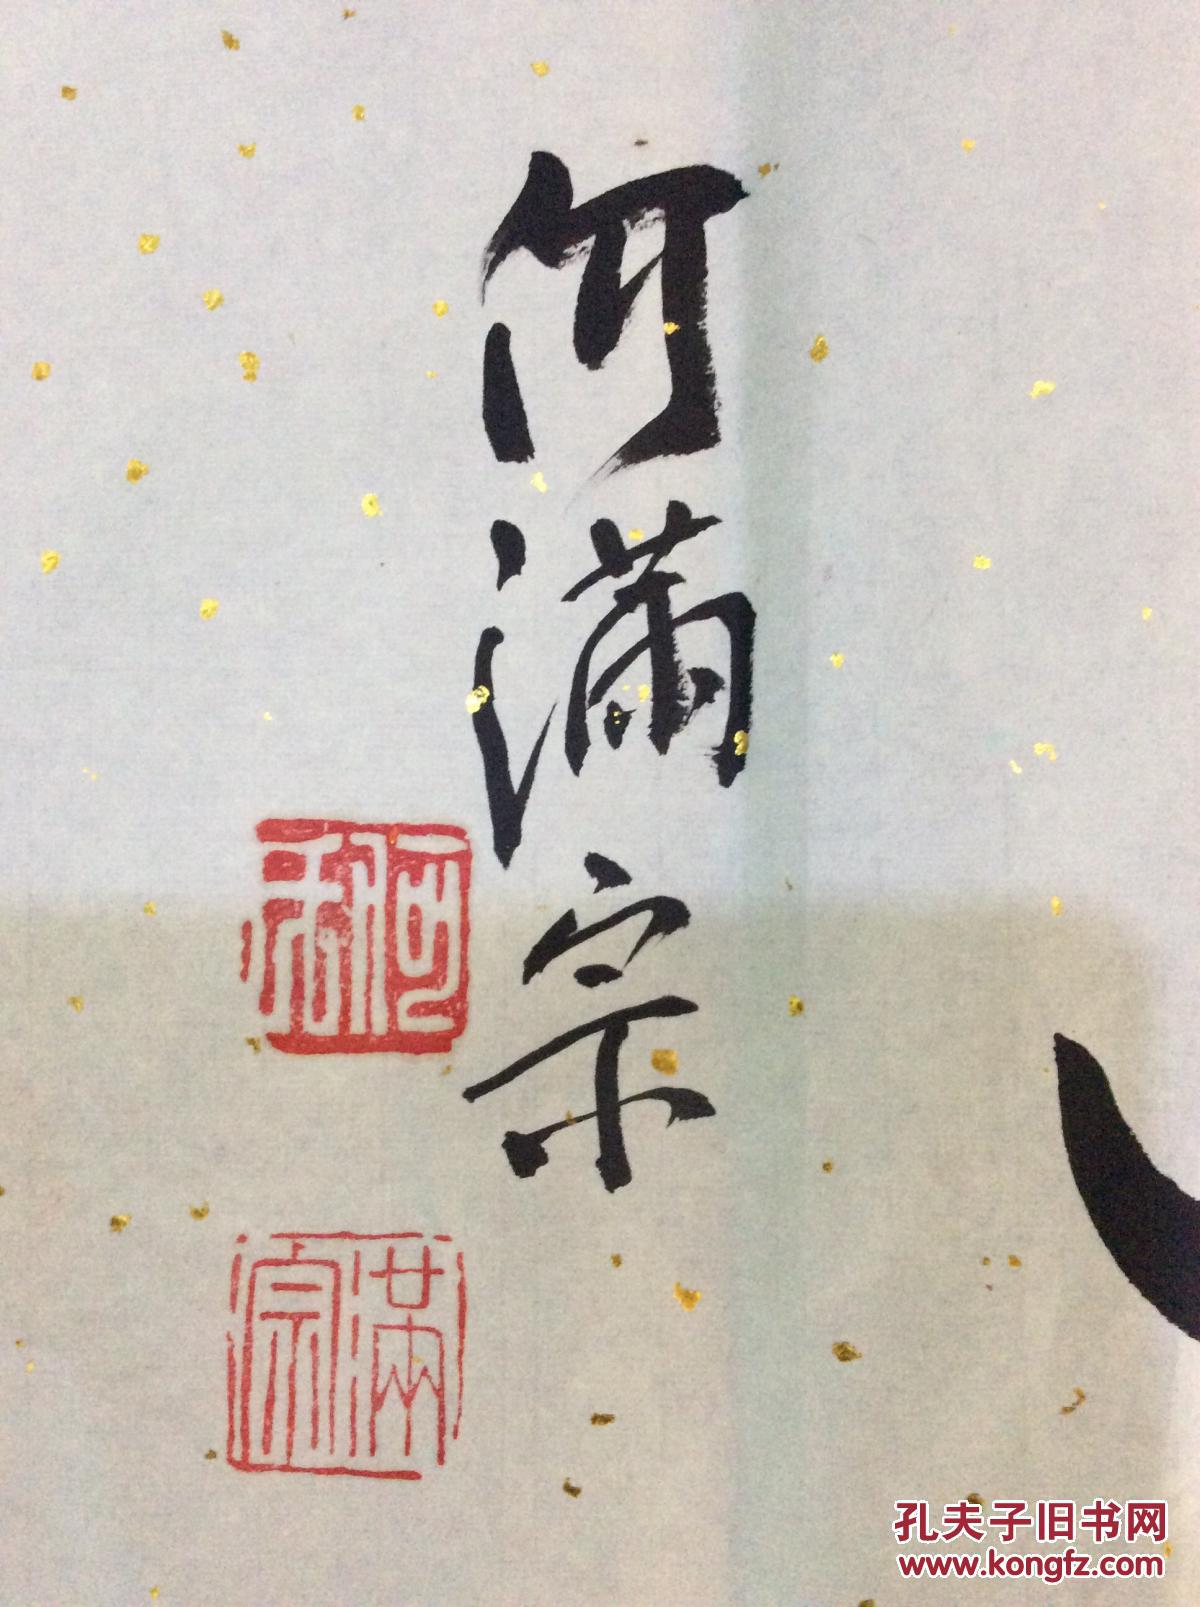 何满宗
满宗
孔夫子旧书网
www.kongfz.com